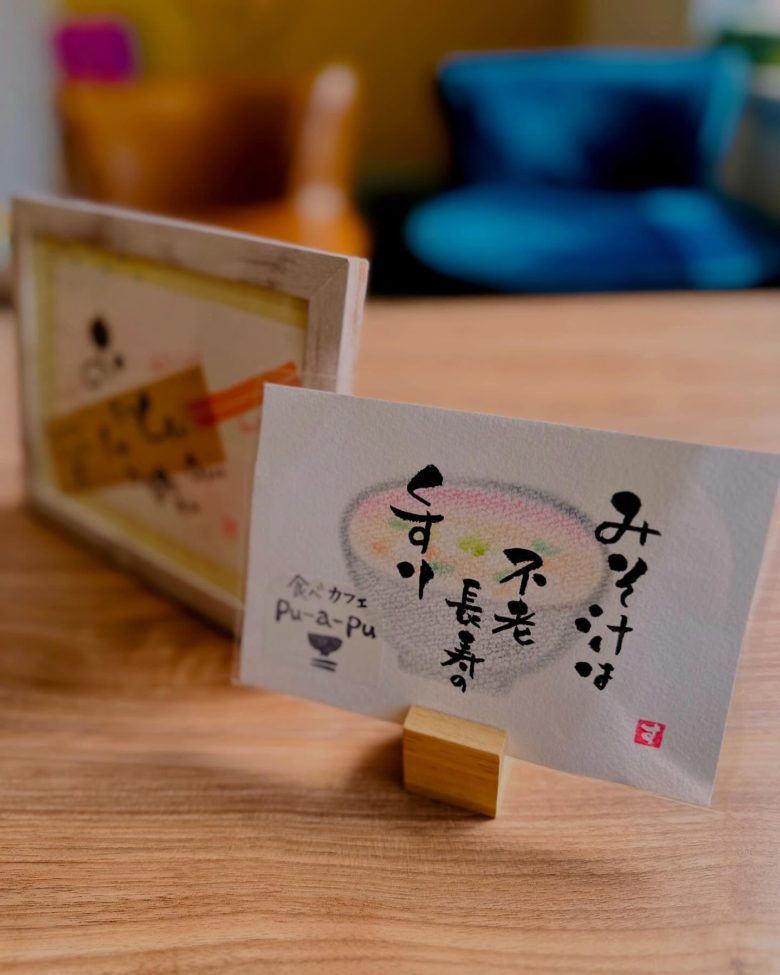 みそ汁は
不老
長寿の
くすり
食べカフェ
pu-a-pu
す